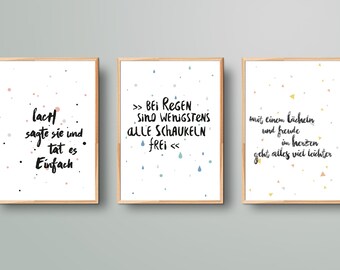 lach
sagte sie und
tat es
Einfach
>> BEI REGEN
SIND WENIGSTENS
ALLE SCHAUKELN
FREI <<
mit einem lächeln
und freude
im herzen
geht alles viel leichter